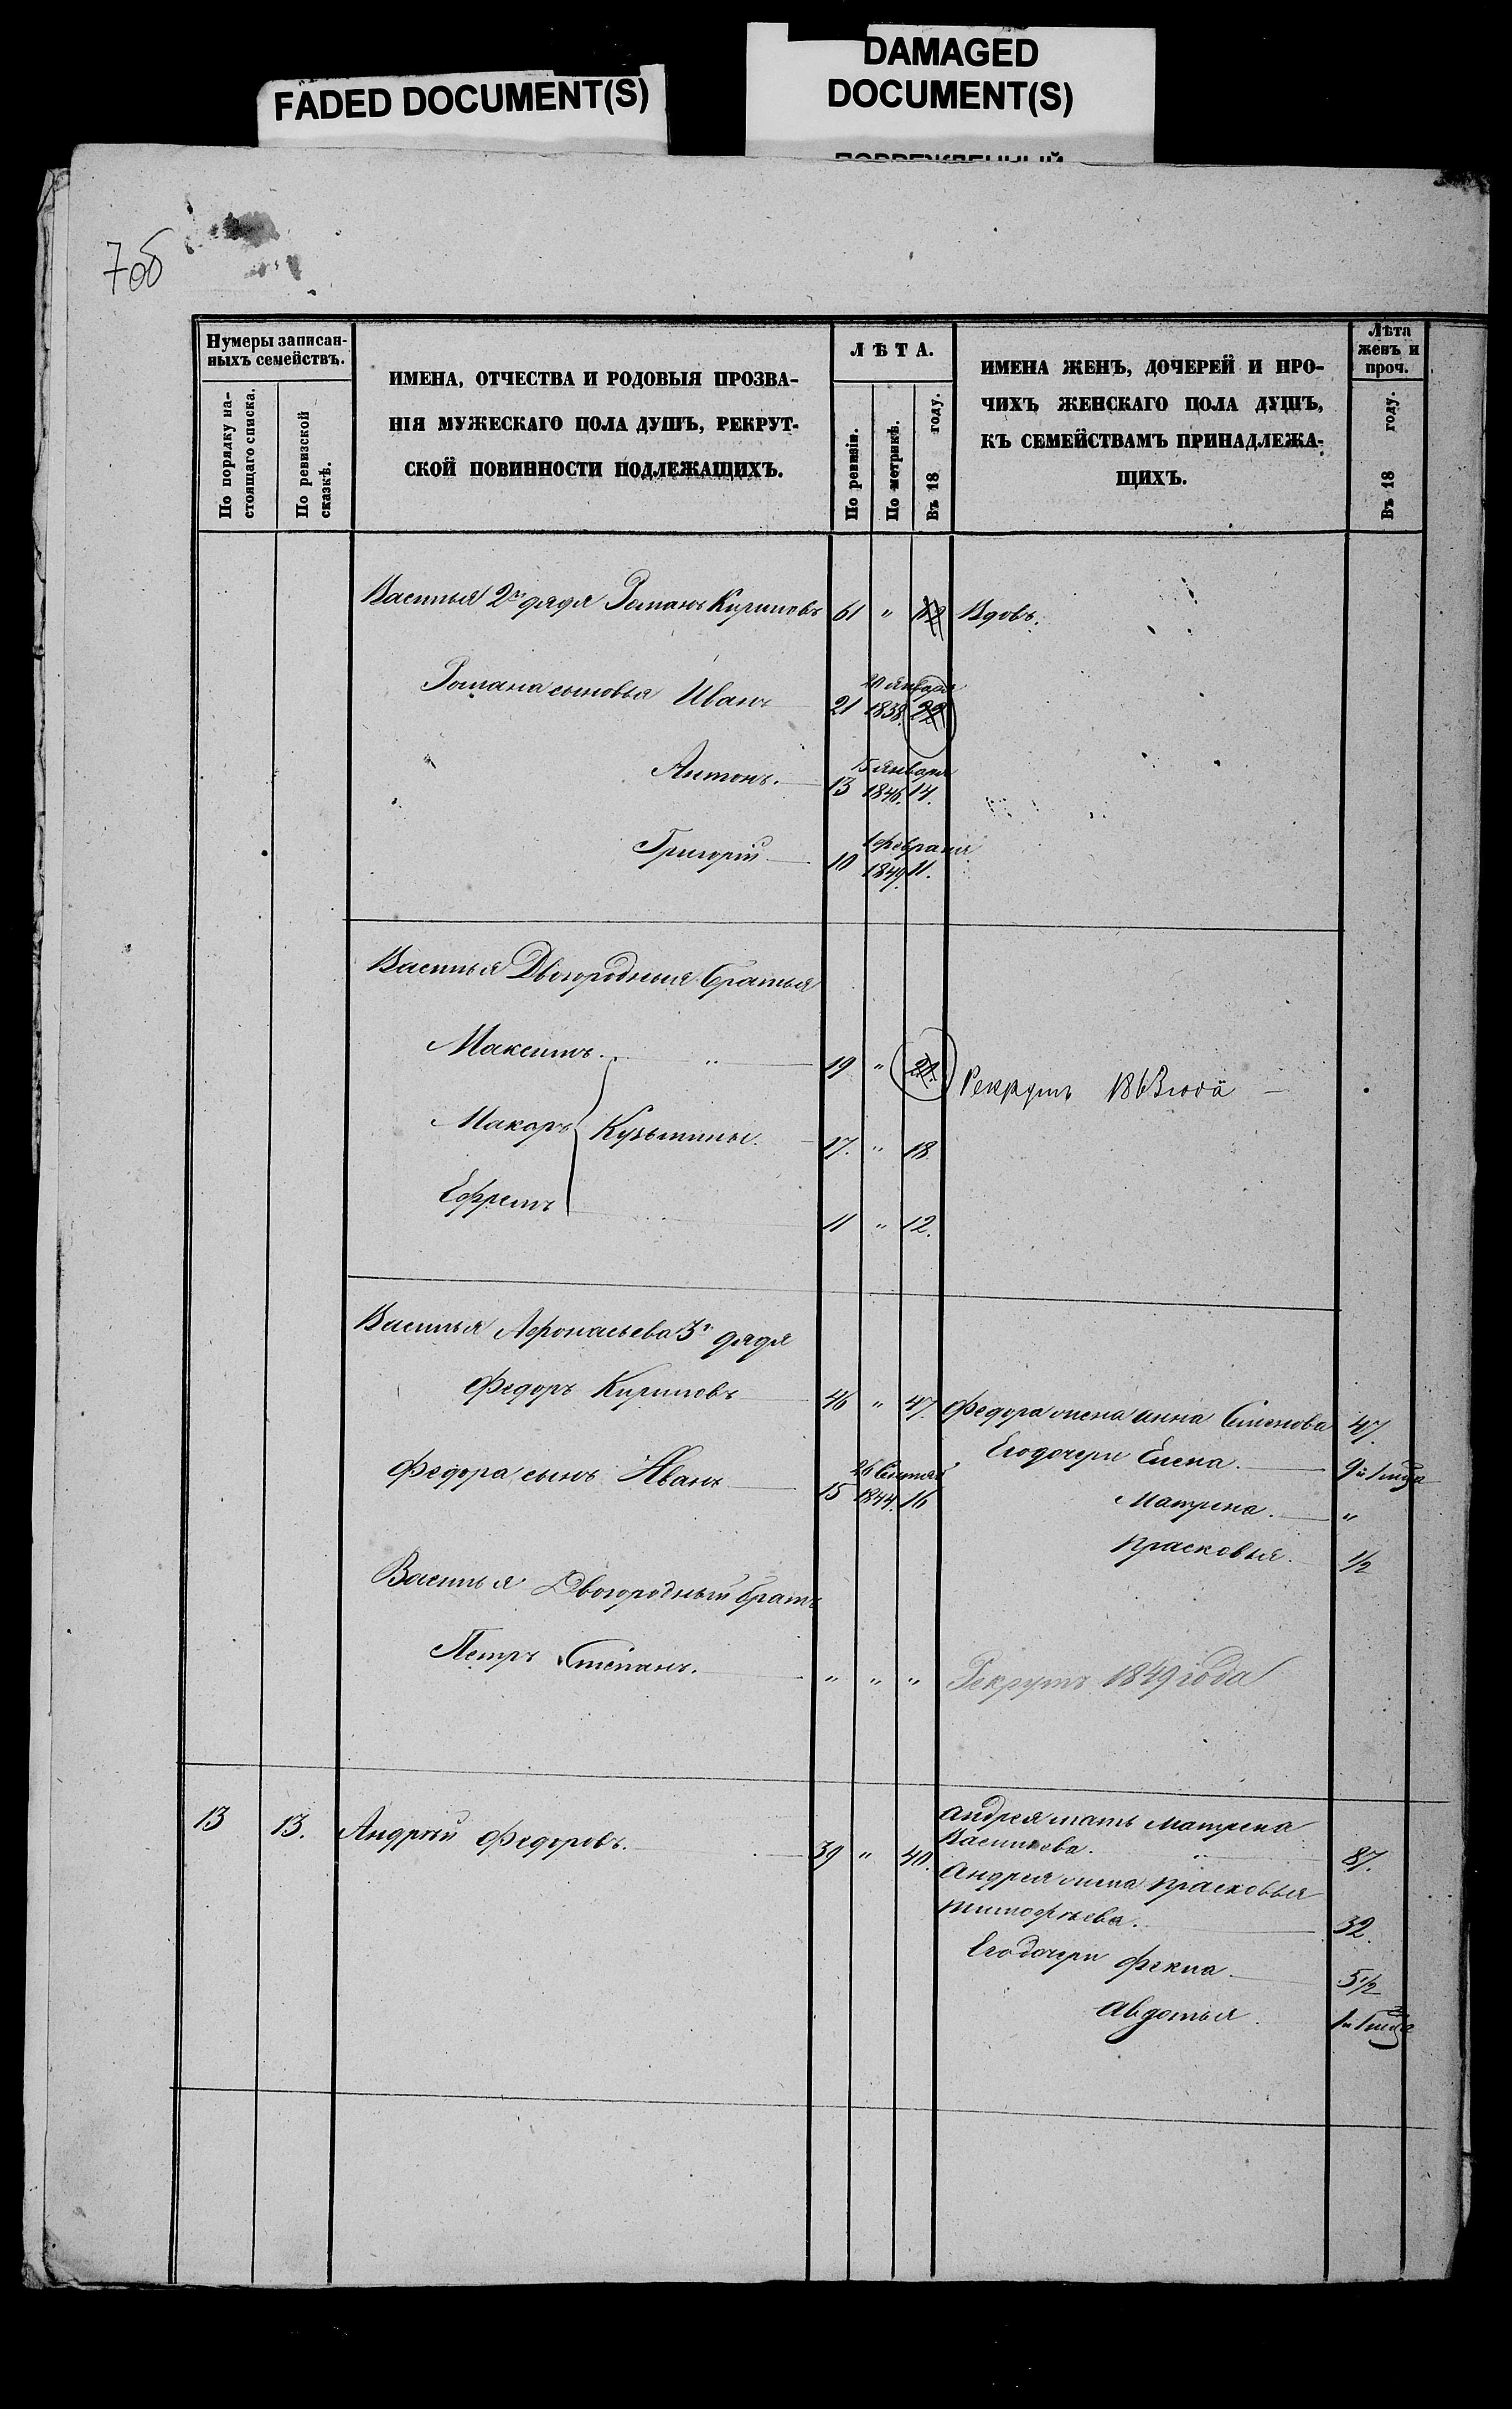 FADED DOCUMENT(S)
DAMAGED
DOCUMENT(S)
7об
Нумеры записан-
ныхъ семействъ.
По порядку на-
стоящаго списка.
По ревизской
сказкѣ.
ИМЕНА, ОТЧЕСТВА И РОДОВЫЯ ПРОЗВА-
НІЯ МУЖЕСКАГО ПОЛА ДУШЪ, РЕКРУТ-
СКОЙ ПОВИННОСТИ ПОДЛЕЖАЩИХЪ.
ЛѢТА.
По ревизіи.
По метрикѣ.
Въ 18 году.
ИМЕНА ЖЕНЪ, ДОЧЕРЕЙ И ПРО-
ЧИХЪ ЖЕНСКАГО ПОЛА ДУШЪ,
КЪ СЕМЕЙСТВАМЪ ПРИНАДЛЕЖА-
ЩИХЪ.
Лѣта
женъ и
проч.
Въ 18 году.
Василья 2й дядя Романъ Кириловъ 61 " Вдовъ.
20 января
Романа сыновья Иванъ 21 1838. 22
15 января
Антонъ. 13 1846. 14.
1 февраля
Григорій 10 1849. 11.
Василья Двоюродныя братья
Максимъ. " 19 " 21. Рекрутъ 1863 года
Макаръ Кузьмины. 17. " 18.
Ефремъ 11 " 12.
Василья Афонасьева 3й дядя
Федоръ Кириловъ 46 " 47. Федора жена Анна Семенова 47.
Его дочери Елена. 9 и 1 мца
Федора сынъ Иванъ 15 1844. 16
Матрена. "
Прасковья. 1/2
Василья Двоюродный братъ
Петръ Степанъ. " " " Рекрутъ 1849 года
13 13. Андрей Федоровъ. 39 " 40.
Андрея мать Матрена
Васильева. " 87.
Андрея жена Прасковья
Тимофѣева. 32.
Его дочери Фекла 5 1/2
Авдотья.